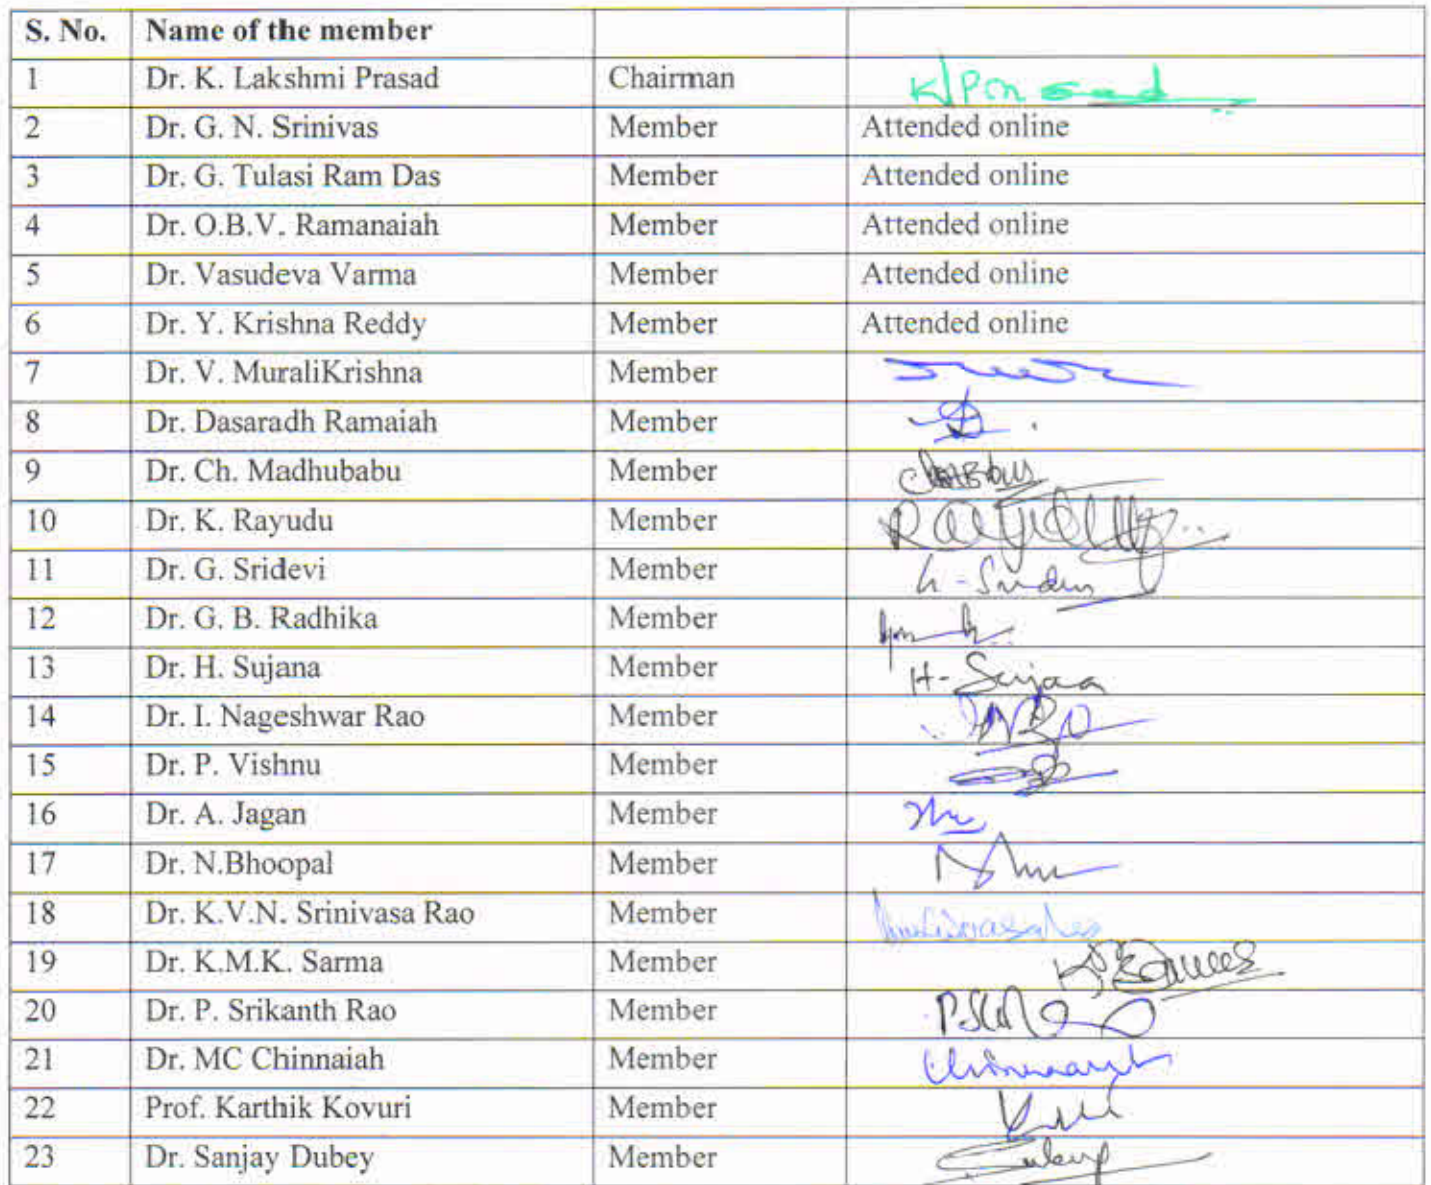 S. No. Name of the member
1 Dr. K. Lakshmi Prasad Chairman
2 Dr. G. N. Srinivas Member Attended online
3 Dr. G. Tulasi Ram Das Member Attended online
4 Dr. O.B.V. Ramanaiah Member Attended online
5 Dr. Vasudeva Varma Member Attended online
6 Dr. Y. Krishna Reddy Member Attended online
7 Dr. V. MuraliKrishna Member
8 Dr. Dasaradh Ramaiah Member
9 Dr. Ch. Madhubabu Member
10 Dr. K. Rayudu Member
11 Dr. G. Sridevi Member
12 Dr. G. B. Radhika Member
13 Dr. H. Sujana Member H. Sujana
14 Dr. I. Nageshwar Rao Member
15 Dr. P. Vishnu Member
16 Dr. A. Jagan Member
17 Dr. N.Bhoopal Member
18 Dr. K.V.N. Srinivasa Rao Member
19 Dr. K.M.K. Sarma Member
20 Dr. P. Srikanth Rao Member
21 Dr. MC Chinnaiah Member
22 Prof. Karthik Kovuri Member
23 Dr. Sanjay Dubey Member